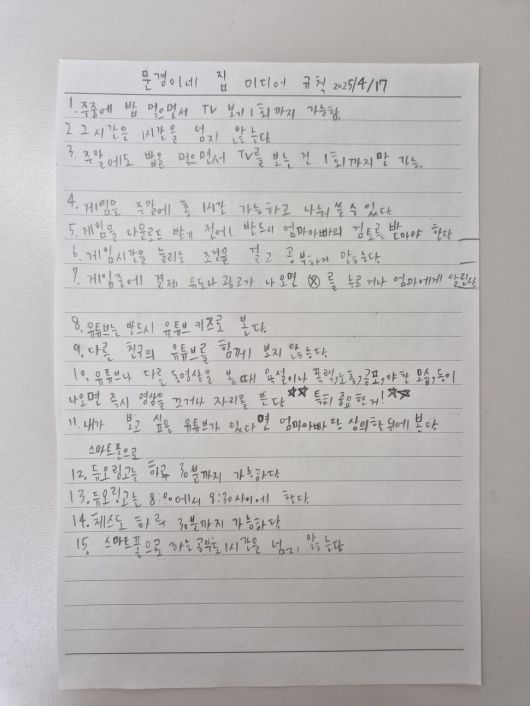 문경이네 집 미디어 규칙 2025/4/17
1. 주중에 밥 먹으면서 TV 보기 1회까지 가능함.
2. 그 시간은 1시간을 넘지 않는다.
3. 주말에도 밥을 먹으면서 TV를 보는 건 1회까지만 가능.
4. 게임은 주말에 총 1시간 가능하고 나눠 쓸 수 있다.
5. 게임을 다운로드 받기 전에 반드시 엄마아빠의 검토를 받아야 한다
6. 게임시간을 늘리는 조건을 걸고 공부하지 않는다.
7. 게임중에 결제 유도나 광고가 나오면 ⓧ를 누르거나 엄마에게 알린다
8. 유튜브는 반드시 유튜브 키즈로 본다.
9. 다른 친구의 유튜브를 함께 보지 않는다.
10. 유튜브나 다른 동영상을 볼때 욕설이나 폭력,노출,공포,야한 모습,등이
나오면 즉시 영상을 끄거나 자리를 뜬다 ☆☆ 특히 중요한거! ☆☆
11. 내가 보고 싶은 유튜브가 있다면 엄마아빠랑 상의한 뒤에 본다
스마트폰으로
12. 듀오링고는 하루 30분까지 가능하다.
13. 듀오링고는 8:00에서 8:30사이에 한다.
14. 체스도 하루 30분까지 가능하다.
15. 스마트폰으로 하는 공부도 1시간을 넘지 않는다.